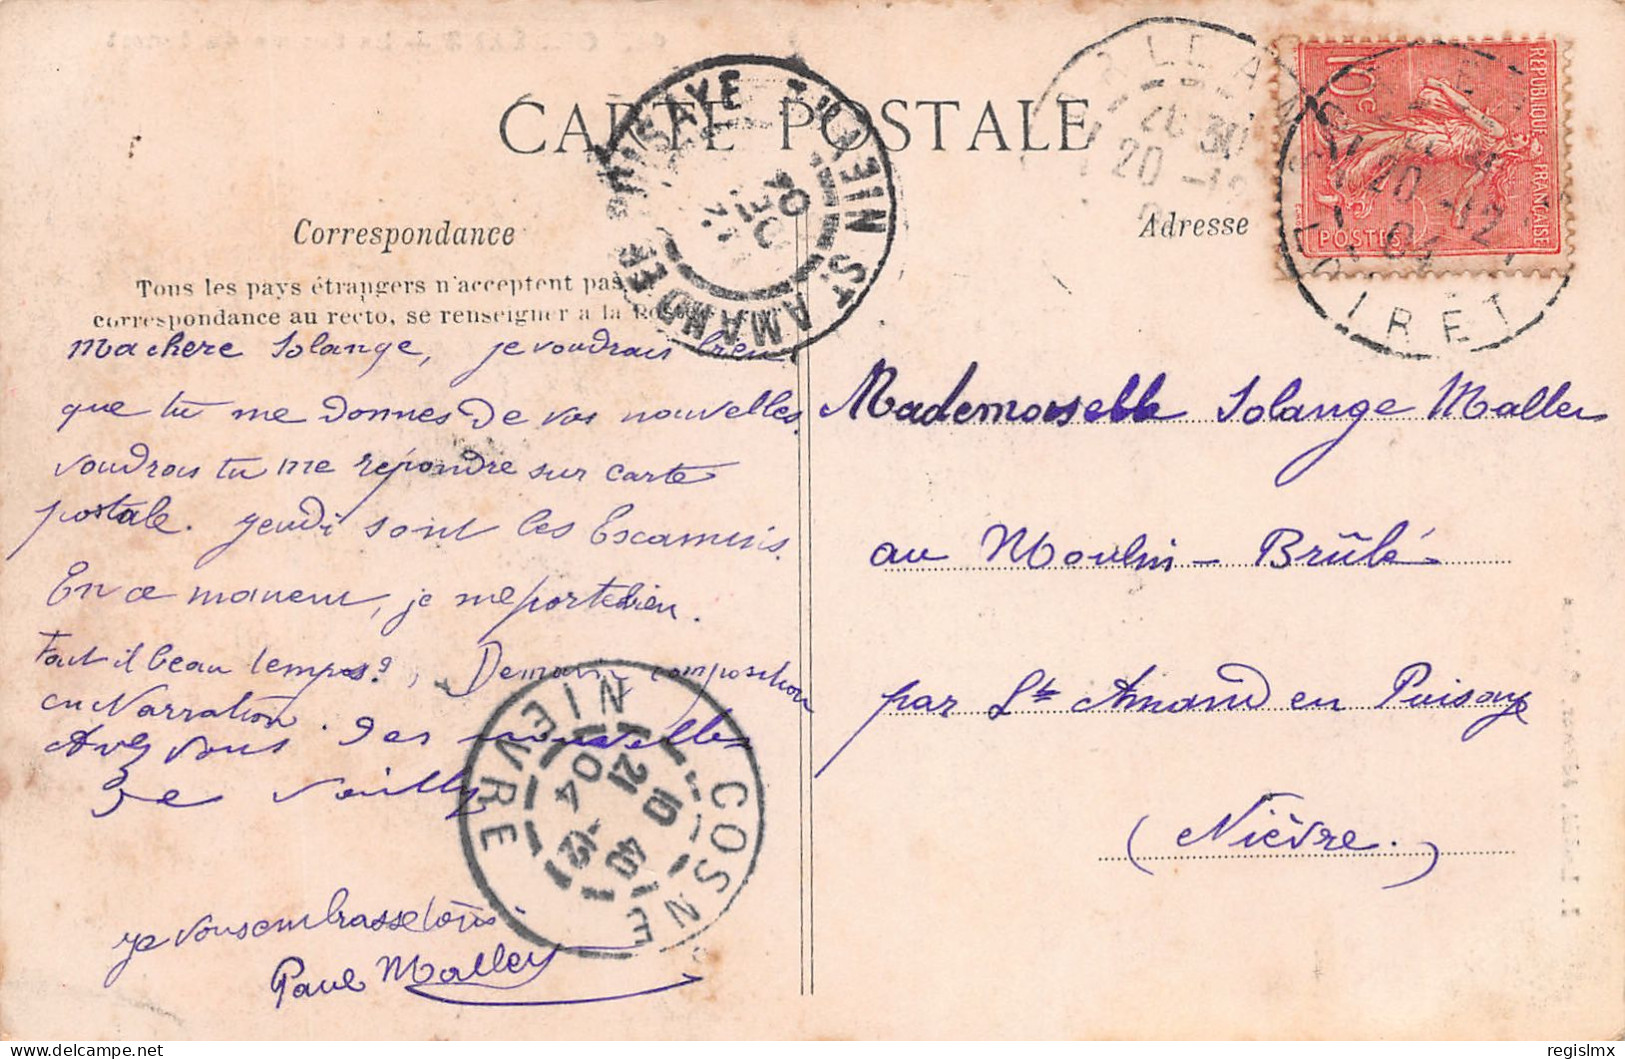 CARTE POSTALE
Correspondance
Adresse
Tous les pays étrangers n'acceptent pas
correspondance au recto, se renseigner a la
Ma chere Solange, je voudrais bien
que tu me donnes de vos nouvelles.
voudrais tu me repondre sur carte
postale. jeudi sont les Examens.
En ce moment, je me porte bien.
Fait il beau temps?, Demain composition
en Narration.
Avez vous des nouvelles
De
je vous embrasse tous.
Paul Malley
Mademoiselle Solange Malley
au Moulin-Brûlé
par St Amand en Puisaye
(Nièvre.)
RÉPUBLIQUE FRANÇAISE
10c
POSTES
ORLEANS
20 -12
LOIRET
20 -12
04
ST AMAND EN PUISAYE
NIEVRE
COSNE
NIEVRE
15 40
21 -12
04
regislmx